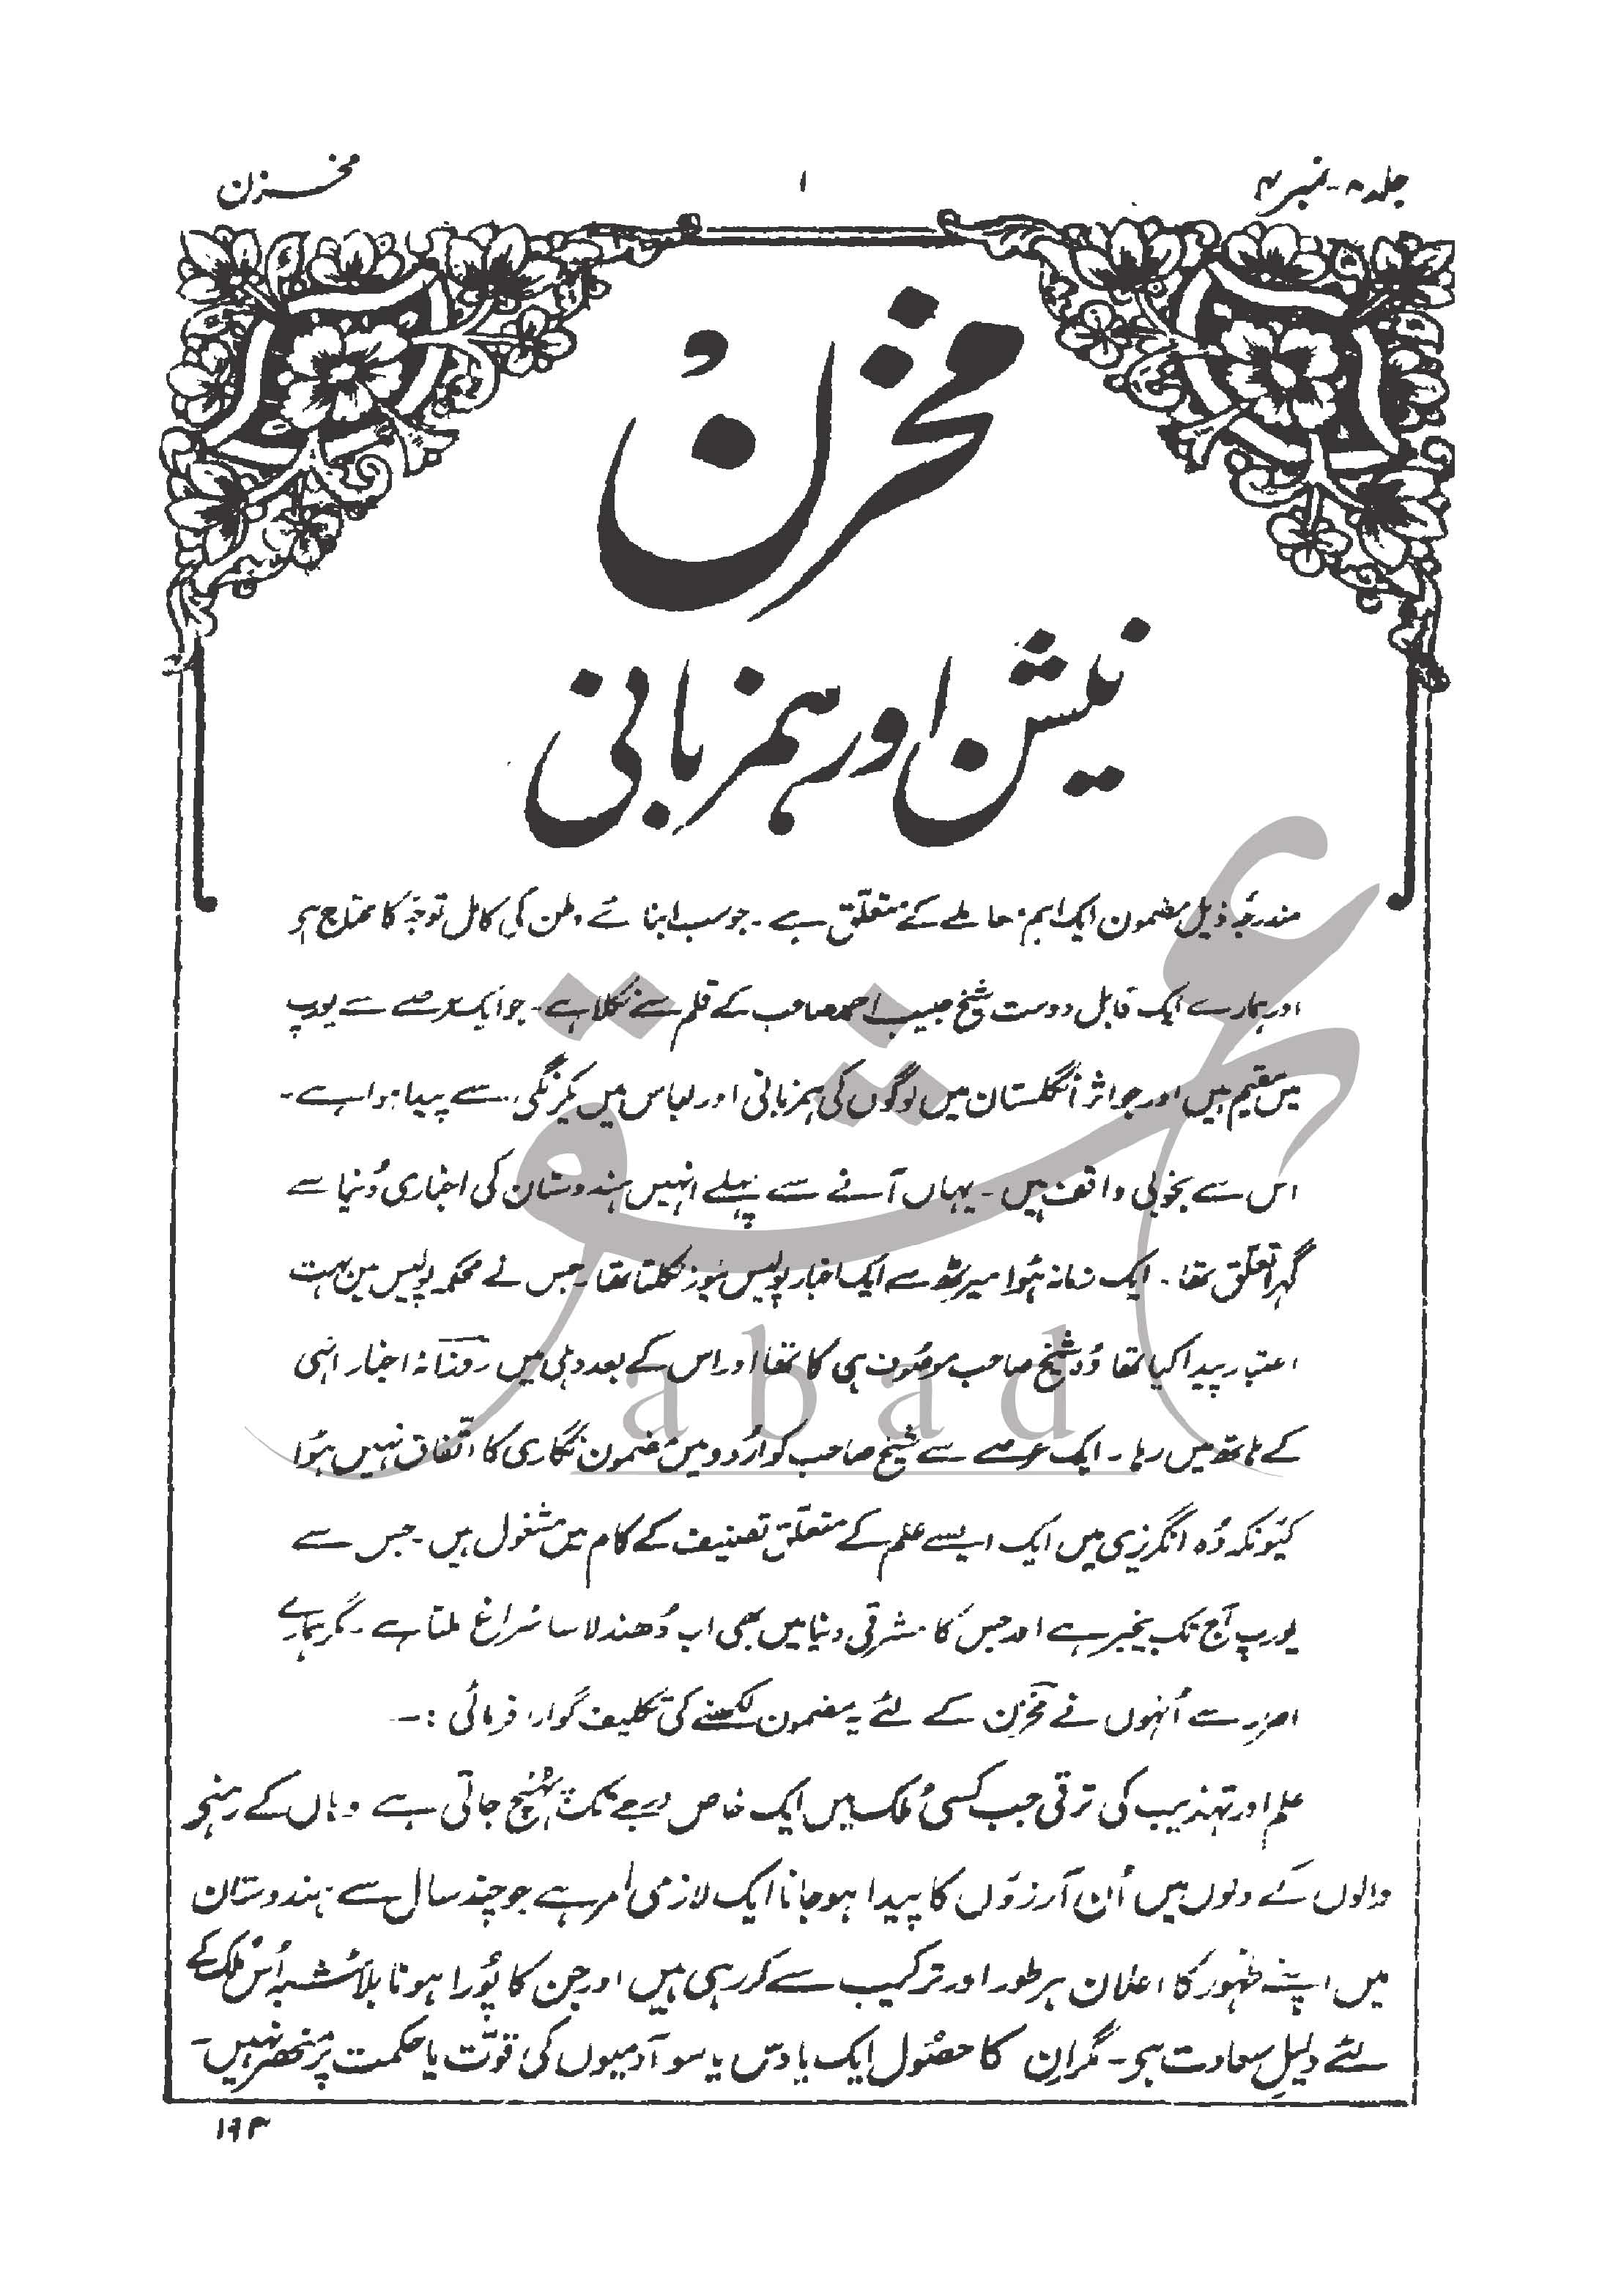 جلد ۸ - نمبر ۴
۱
مخزن
مخزن
نیشن اور ہمزبانی
مندرجۂ ذیل مضمون ایک اہم معاملے کے متعلّق ہے - جو سب ابنائے وطن کی کامل توجّہ کا محتاج ہی
اور ہمارے ایک قابل دوست شیخ حبیب احمد صاحب کے قلم سے نکلا ہے - جو ایک عرصے سے یورپ
میں مقیم ہیں اور جو اثر انگلستان میں لوگوں کی ہمزبانی اور لباس میں یکرنگی سے پیدا ہوا ہے -
اس سے بخوبی واقف ہیں - یہاں آنے سے پہلے انہیں ہندوستان کی اخباری دُنیا سے
گہرا تعلّق تھا - ایک زمانہ ہُوا میرٹھ سے ایک اخبار پولیس نیوز نکلتا تھا - جس نے محکمہ پولیس میں بہت
اعتبار پیدا کیا تھا وُہ شیخ صاحب موصُوف ہی کا تھا اور اس کے بعد دہلی میں روزنانہ اخبار انہی
کے ہاتھ میں رہا - ایک عرصے سے شیخ صاحب کو اُردو میں مضمون نگاری کا اتّفاق نہیں ہُوا
کیُونکہ وُہ انگریزی میں ایک ایسے علم کے متعلّق تصنیف کے کام میں مشغول ہیں - جس سے
یورپ آج تک بیخبر ہے اور جس کا مشرقی دنیا میں بھی اب دُھندلا سا سُراغ ملتا ہے - مگر ہمارے
اصرار سے اُنہوں نے مخزن کے لئے یہ مضمون لکھنے کی تکلیف گوارا فرمائی :-
علم اور تہذیب کی ترقی جب کسی مُلک میں ایک خاص درجے تک پہُنچ جاتی ہے وہاں کے رہنے
والوں کے دلوں میں اُن آرزوٗں کا پیدا ہو جانا ایک لازمی امر ہے جو چند سال سے ہندوستان
میں اپنے ظہور کا اعلان ہر طور اور ترکیب سے کر رہی ہیں اور جن کا پُورا ہونا بلا شُبہ اُس مُلک کے
لئے دلیلِ سعادت ہی - مگر ان کا حصُول ایک یا دس یا سو آدمیوں کی قوّت یا حکمت پر منحصر نہیں -
۱۹۳